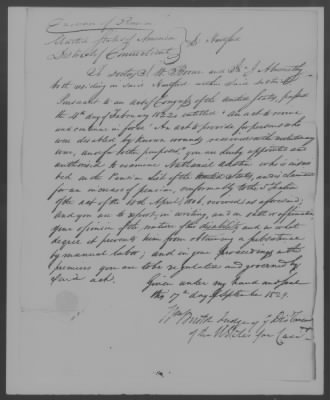 United States of America
District of Connecticut } ss. Hartford
To Doctors
both residing in said Hartford within said District
Pursuant to an act of Congress of the United States, passed
the 4th day of February 1822 entitled "An act to revive
and continue in force "An act to provide for persons who
were disabled by known wounds received in the revolutionary
war, and for other purposes" you are hereby appointed and
authorised to examine Nathaniel who is inscri
bed on the Pension List of the United States, and is claimant
for an increase of pension, conformably to the 3d Section
of the act of the 10th April, 1806, revived as aforesaid;
And you are to report, in writing, and on oath or affirmation
your opinion of the nature of the disability and in what
degree it prevents him from obtaining a subsistence
by manual labor; and in your proceedings in the
premises you are to be regulated and governed by
said act.
Given under my hand and seal
this 17th day of September 1829.
Wm Bristol Judge of
of the